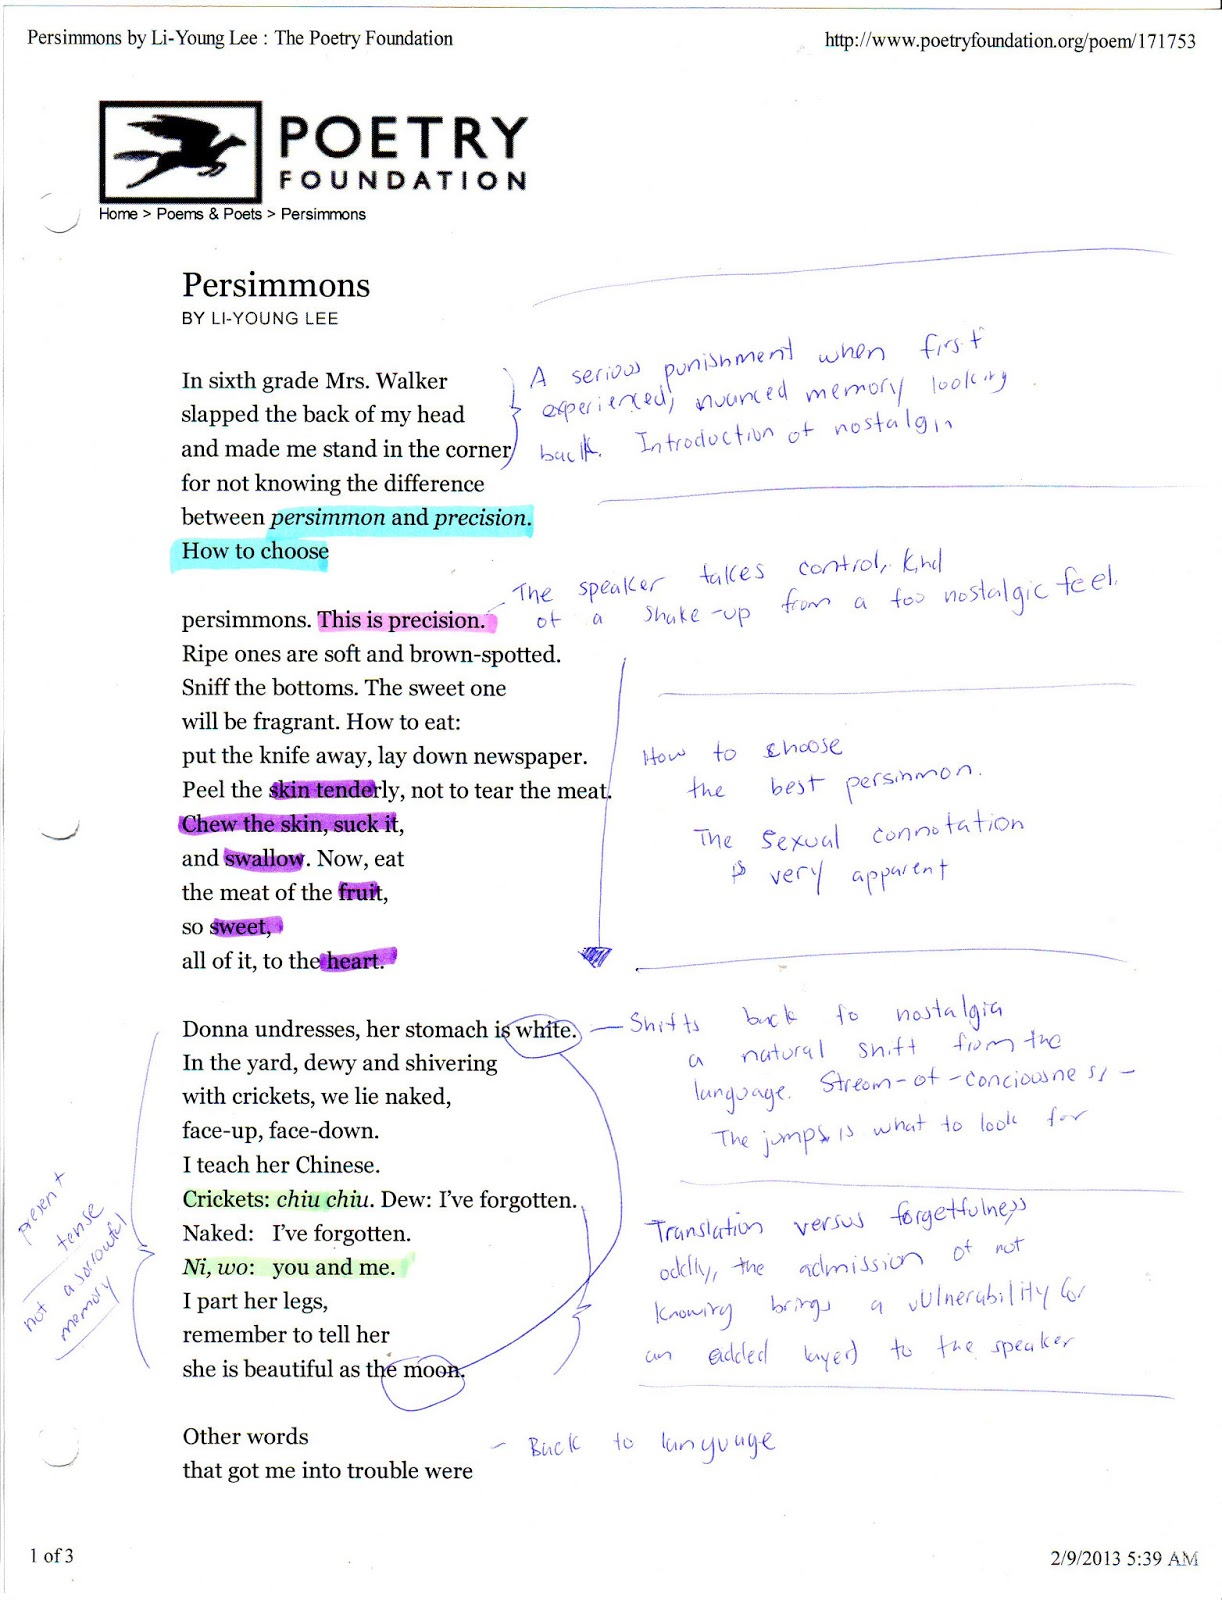 Persimmons by Li-Young Lee : The Poetry Foundation
http://www.poetryfoundation.org/poem/171753
POETRY
FOUNDATION
Home > Poems & Poets > Persimmons
Persimmons
BY LI-YOUNG LEE
In sixth grade Mrs. Walker
slapped the back of my head
and made me stand in the corner
for not knowing the difference
between persimmon and precision.
How to choose
A serious punishment when first
experienced, nuanced memory looking
back. Introduction of nostalgia
persimmons. This is precision.
Ripe ones are soft and brown-spotted.
Sniff the bottoms. The sweet one
will be fragrant. How to eat:
put the knife away, lay down newspaper.
Peel the skin tenderly, not to tear the meat.
Chew the skin, suck it,
and swallow. Now, eat
the meat of the fruit,
so sweet,
all of it, to the heart.
The speaker takes control, kind
of a shake-up from a too nostalgic feel.
How to choose
the best persinmon.
The sexual connotation
is very apparent
Donna undresses, her stomach is white.
In the yard, dewy and shivering
with crickets, we lie naked,
face-up, face-down.
I teach her Chinese.
Crickets: chiu chiu. Dew: I've forgotten.
Naked: I've forgotten.
Ni, wo: you and me.
I part her legs,
remember to tell her
she is beautiful as the moon.
Shifts back to nostalgia
a natural shift from the
language. Stream-of-conciousness -
The jumps is what to look for
Translation versus forgetfulness
oddly, the admission of not
knowing brings a vulnerability (or
an added layer) to the speaker
present
tense
not a sorrowful
memory
Other words
that got me into trouble were
- Back to language
1 of 3
2/9/2013 5:39 AM